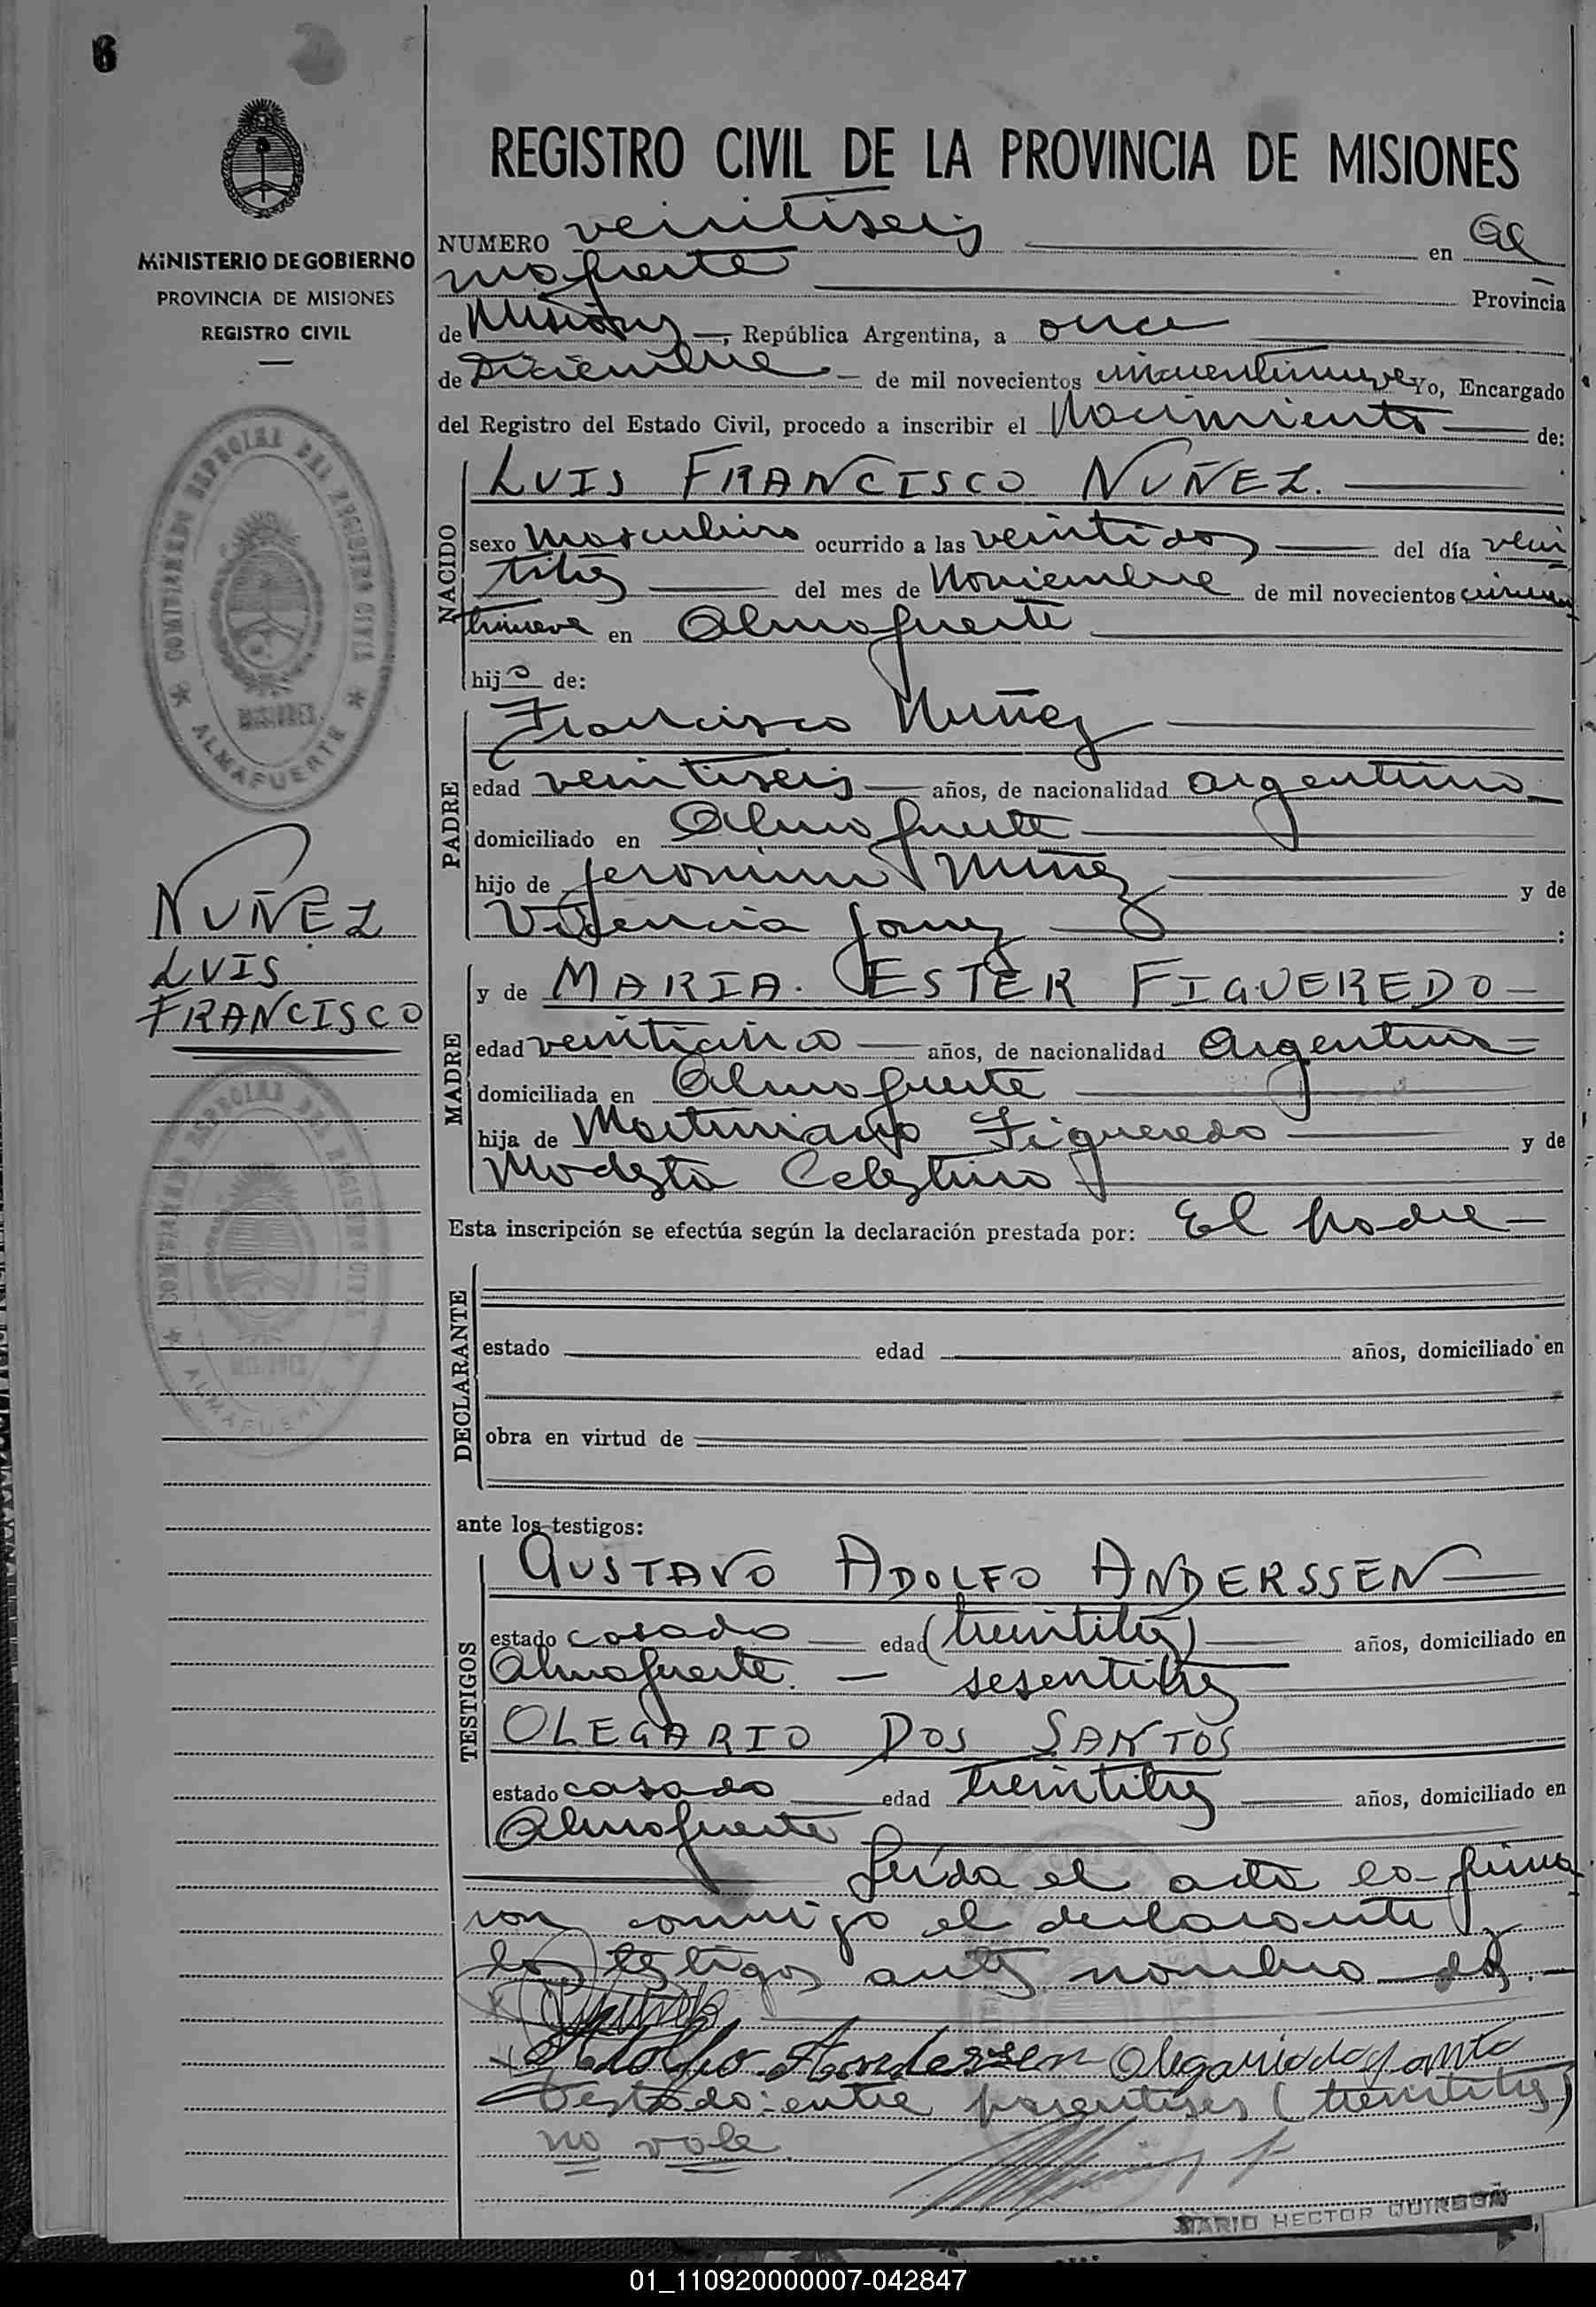 6
MINISTERIO DE GOBIERNO
PROVINCIA DE MISIONES
REGISTRO CIVIL
COMISARIADO ESPECIAL DEL REGISTRO CIVIL
MISIONES
ALMAFUERTE
NUÑEZ
LUIS
FRANCISCO
REGISTRO CIVIL DE LA PROVINCIA DE MISIONES
NUMERO veintiseis en Al
mafuerte Provincia
de Misiones, República Argentina, a once
de Diciembre de mil novecientos cincuentinueve Yo, Encargado
del Registro del Estado Civil, procedo a inscribir el Nacimiento de:
NACIDO
LUIS FRANCISCO NUÑEZ.
sexo masculino ocurrido a las veintidos del día vein
titres del mes de Noviembre de mil novecientos cincuen
tinueve en Almafuerte
hijo de:
PADRE
Francisco Nuñez
edad veintiseis años, de nacionalidad argentino
domiciliado en Almafuerte
hijo de Jeronimo Nuñez y de
Gomez
MADRE
y de MARIA ESTER FIGUEREDO
edad veinticinco años, de nacionalidad Argentina
domiciliada en Almafuerte
hija de Martiniano Figueredo y de
Modesta Celestino
Esta inscripción se efectúa según la declaración prestada por: El padre
DECLARANTE
estado edad años, domiciliado en
obra en virtud de
ante los testigos:
TESTIGOS
GUSTAVO ADOLFO ANDERSSEN
estado casado edad (treintitres) años, domiciliado en
Almafuerte. - sesentitres
OLEGARIO DOS SANTOS
estado casado edad treintitres años, domiciliado en
Almafuerte
Leida el acta la firma
ron conmigo el declarante y
los testigos antes nombrados.
Adolfo Anderssen Olegario dos Santo
Testado: entre parentises (treintitres)
no vale
MARIO HECTOR
01_110920000007-042847